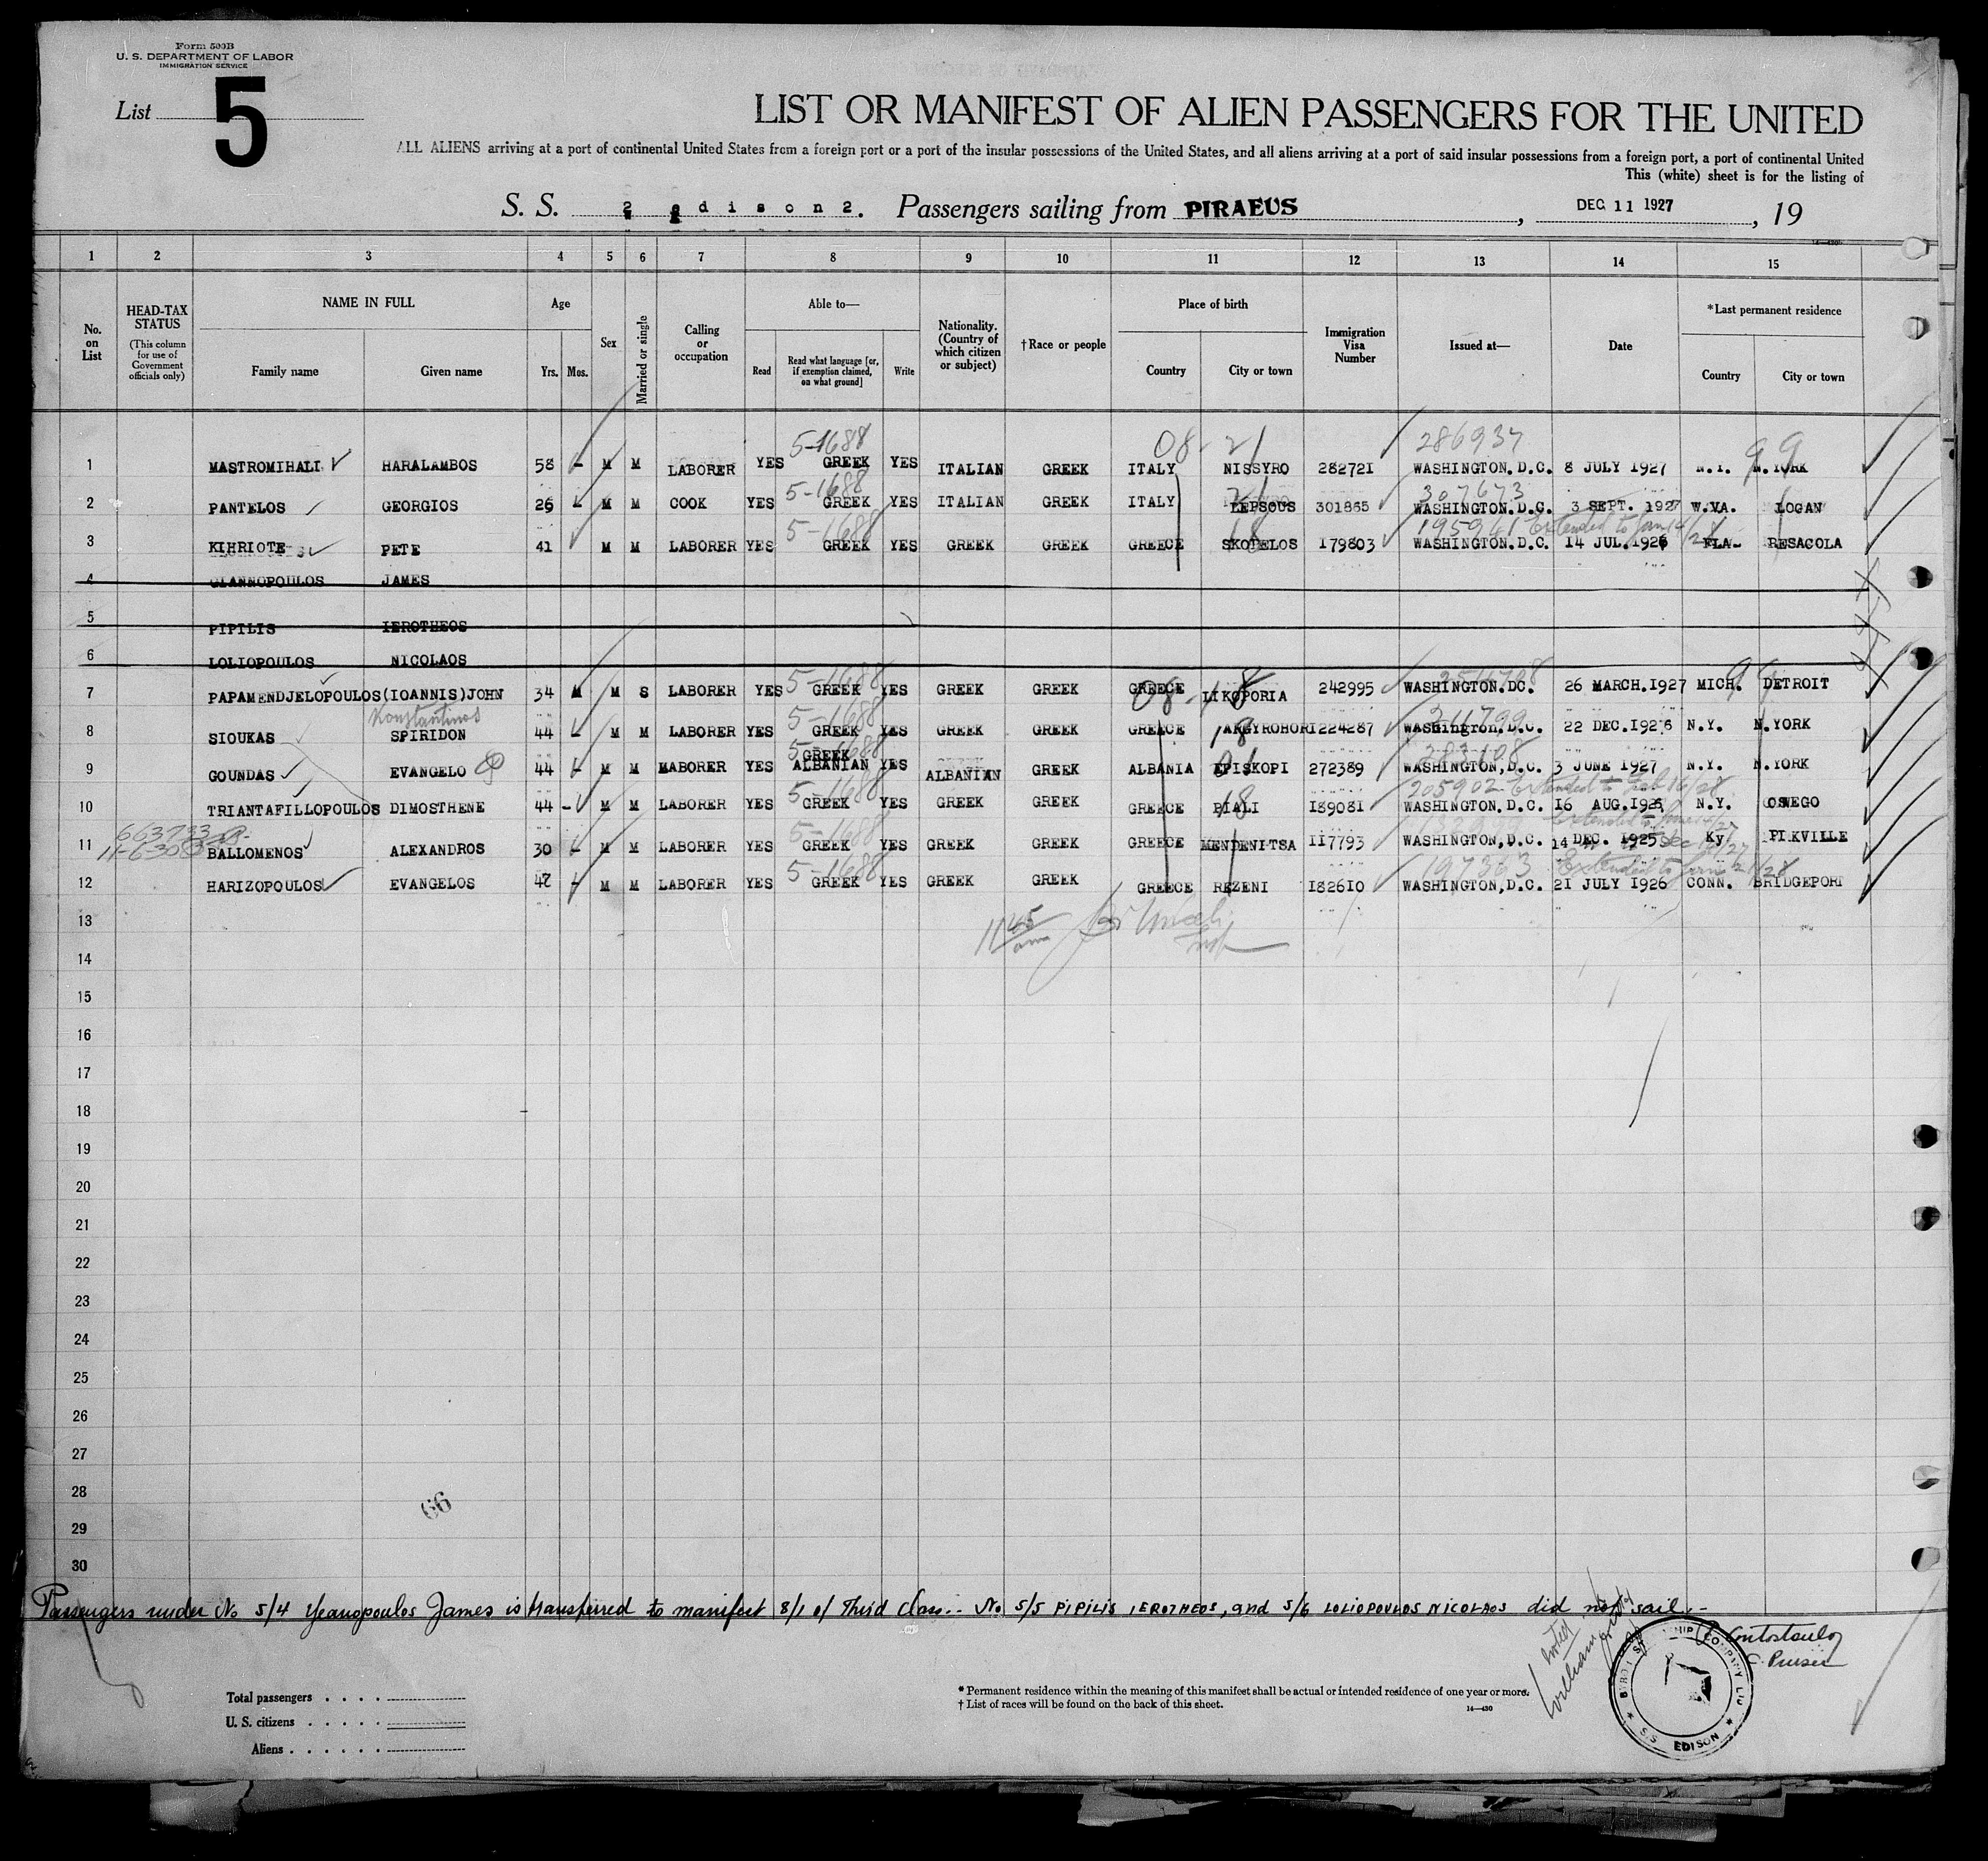 Form 500B
U. S. DEPARTMENT OF LABOR
IMMIGRATION SERVICE
List 5
LIST OR MANIFEST OF ALIEN PASSENGERS FOR THE UNITED
ALL ALIENS arriving at a port of continental United States from a foreign port or a port of the insular possessions of the United States, and all aliens arriving at a port of said insular possessions from a foreign port, a port of continental United
This (white) sheet is for the listing of
S. S. 2 edison2. Passengers sailing from PIRAEUS, DEC 11 1927, 19
1 2 3 4 5 6 7 8 9 10 11 12 13 14 15
No. on List
HEAD-TAX STATUS
(This column for use of Government officials only)
NAME IN FULL
Family name Given name
Age
Yrs. Mos.
Sex
Married or single
Calling or occupation
Able to—
Read Read what language [or, if exemption claimed, on what ground] Write
Nationality. (Country of which citizen or subject)
†Race or people
Place of birth
Country City or town
Immigration Visa Number
Issued at—
Date
*Last permanent residence
Country City or town
5-1688 08-21 286937 99
1 MASTROMIHALI HARALAMBOS 58 - M M LABORER YES GREEK YES ITALIAN GREEK ITALY NISSYRO 282721 WASHINGTON.D.C. 8 JULY 1927 N.Y. N.YORK
5-1688 21 307673
2 PANTELOS GEORGIOS 26 - M M COOK YES GREEK YES ITALIAN GREEK ITALY LEPSOUS 301865 WASHINGTON.D.C. 3 SEPT. 1927 W.VA. LOGAN
5-1688 18 195941 Extended to Jan 14/28
3 KIHRIOTE PETE 41 M M LABORER YES GREEK YES GREEK GREEK GREECE SKOPELOS 179803 WASHINGTON.D.C. 14 JUL.1926 FLA- PESACOLA
4 GIANNOPOULOS JAMES
5 PIPILIS IEROTHEOS
6 LOLIOPOULOS NICOLAOS
5-1688 08-18
7 PAPAMENDJELOPOULOS (IOANNIS)JOHN 34 M M S LABORER YES GREEK YES GREEK GREEK GREECE LIKOPORIA 242995 WASHINGTON.DC. 26 MARCH.1927 MICH. DETROIT
Konstantinos 5-1688 18 211799
8 SIOUKAS SPIRIDON 44 - M M LABORER YES GREEK YES GREEK GREEK GREECE ARGYROHORI 224287 WAShington,D.C. 22 DEC.1926 N.Y. N.YORK
5-1688 GREEK 283108
9 GOUNDAS EVANGELO 44 - M M LABORER YES ALBANIAN YES ALBANIAN GREEK ALBANIA EPISKOPI 272389 WASHINGTON,D.C. 3 JUNE 1927 N.Y. N.YORK
5-1688 18 205902 Extended to Feb 16/28
10 TRIANTAFILLOPOULOS DIMOSTHENE 44 - M M LABORER YES GREEK YES GREEK GREEK GREECE PIALI 189081 WASHINGTON,D.C. 16 AUG.1926 N.Y. OSWEGO
663733 5-1688
11 BALLOMENOS ALEXANDROS 30 - M M LABORER YES GREEK YES GREEK GREEK GREECE MENDENITSA 117793 WASHINGTON,D.C. 14 DEC. 1925 Ky PIKVILLE
5-1688 197363 Extended to
12 HARIZOPOULOS EVANGELOS 42 - M M LABORER YES GREEK YES GREEK GREEK GREECE REZENI 182610 WASHINGTON,D.C. 21 JULY 1926 CONN. BRIDGEPORT
13 11 45 am
14
15
16
17
18
19
20
21
22
23
24
25
26
27
28
66
29
30
Passengers under No 5/4 Yeanopoulos James is transferred to manifest 8/1 of Third Class.- No 5/5 PIPILIS IEROTHEOS, and 5/6 LOLIOPOULOS NICOLAOS did not sail.-
Purser
Total passengers . . . .
U. S. citizens . . . . .
Aliens . . . . . .
* Permanent residence within the meaning of this manifest shall be actual or intended residence of one year or more.
† List of races will be found on the back of this sheet.
14—430
BYRON STEAMSHIP COMPANY LTD
S/S EDISON